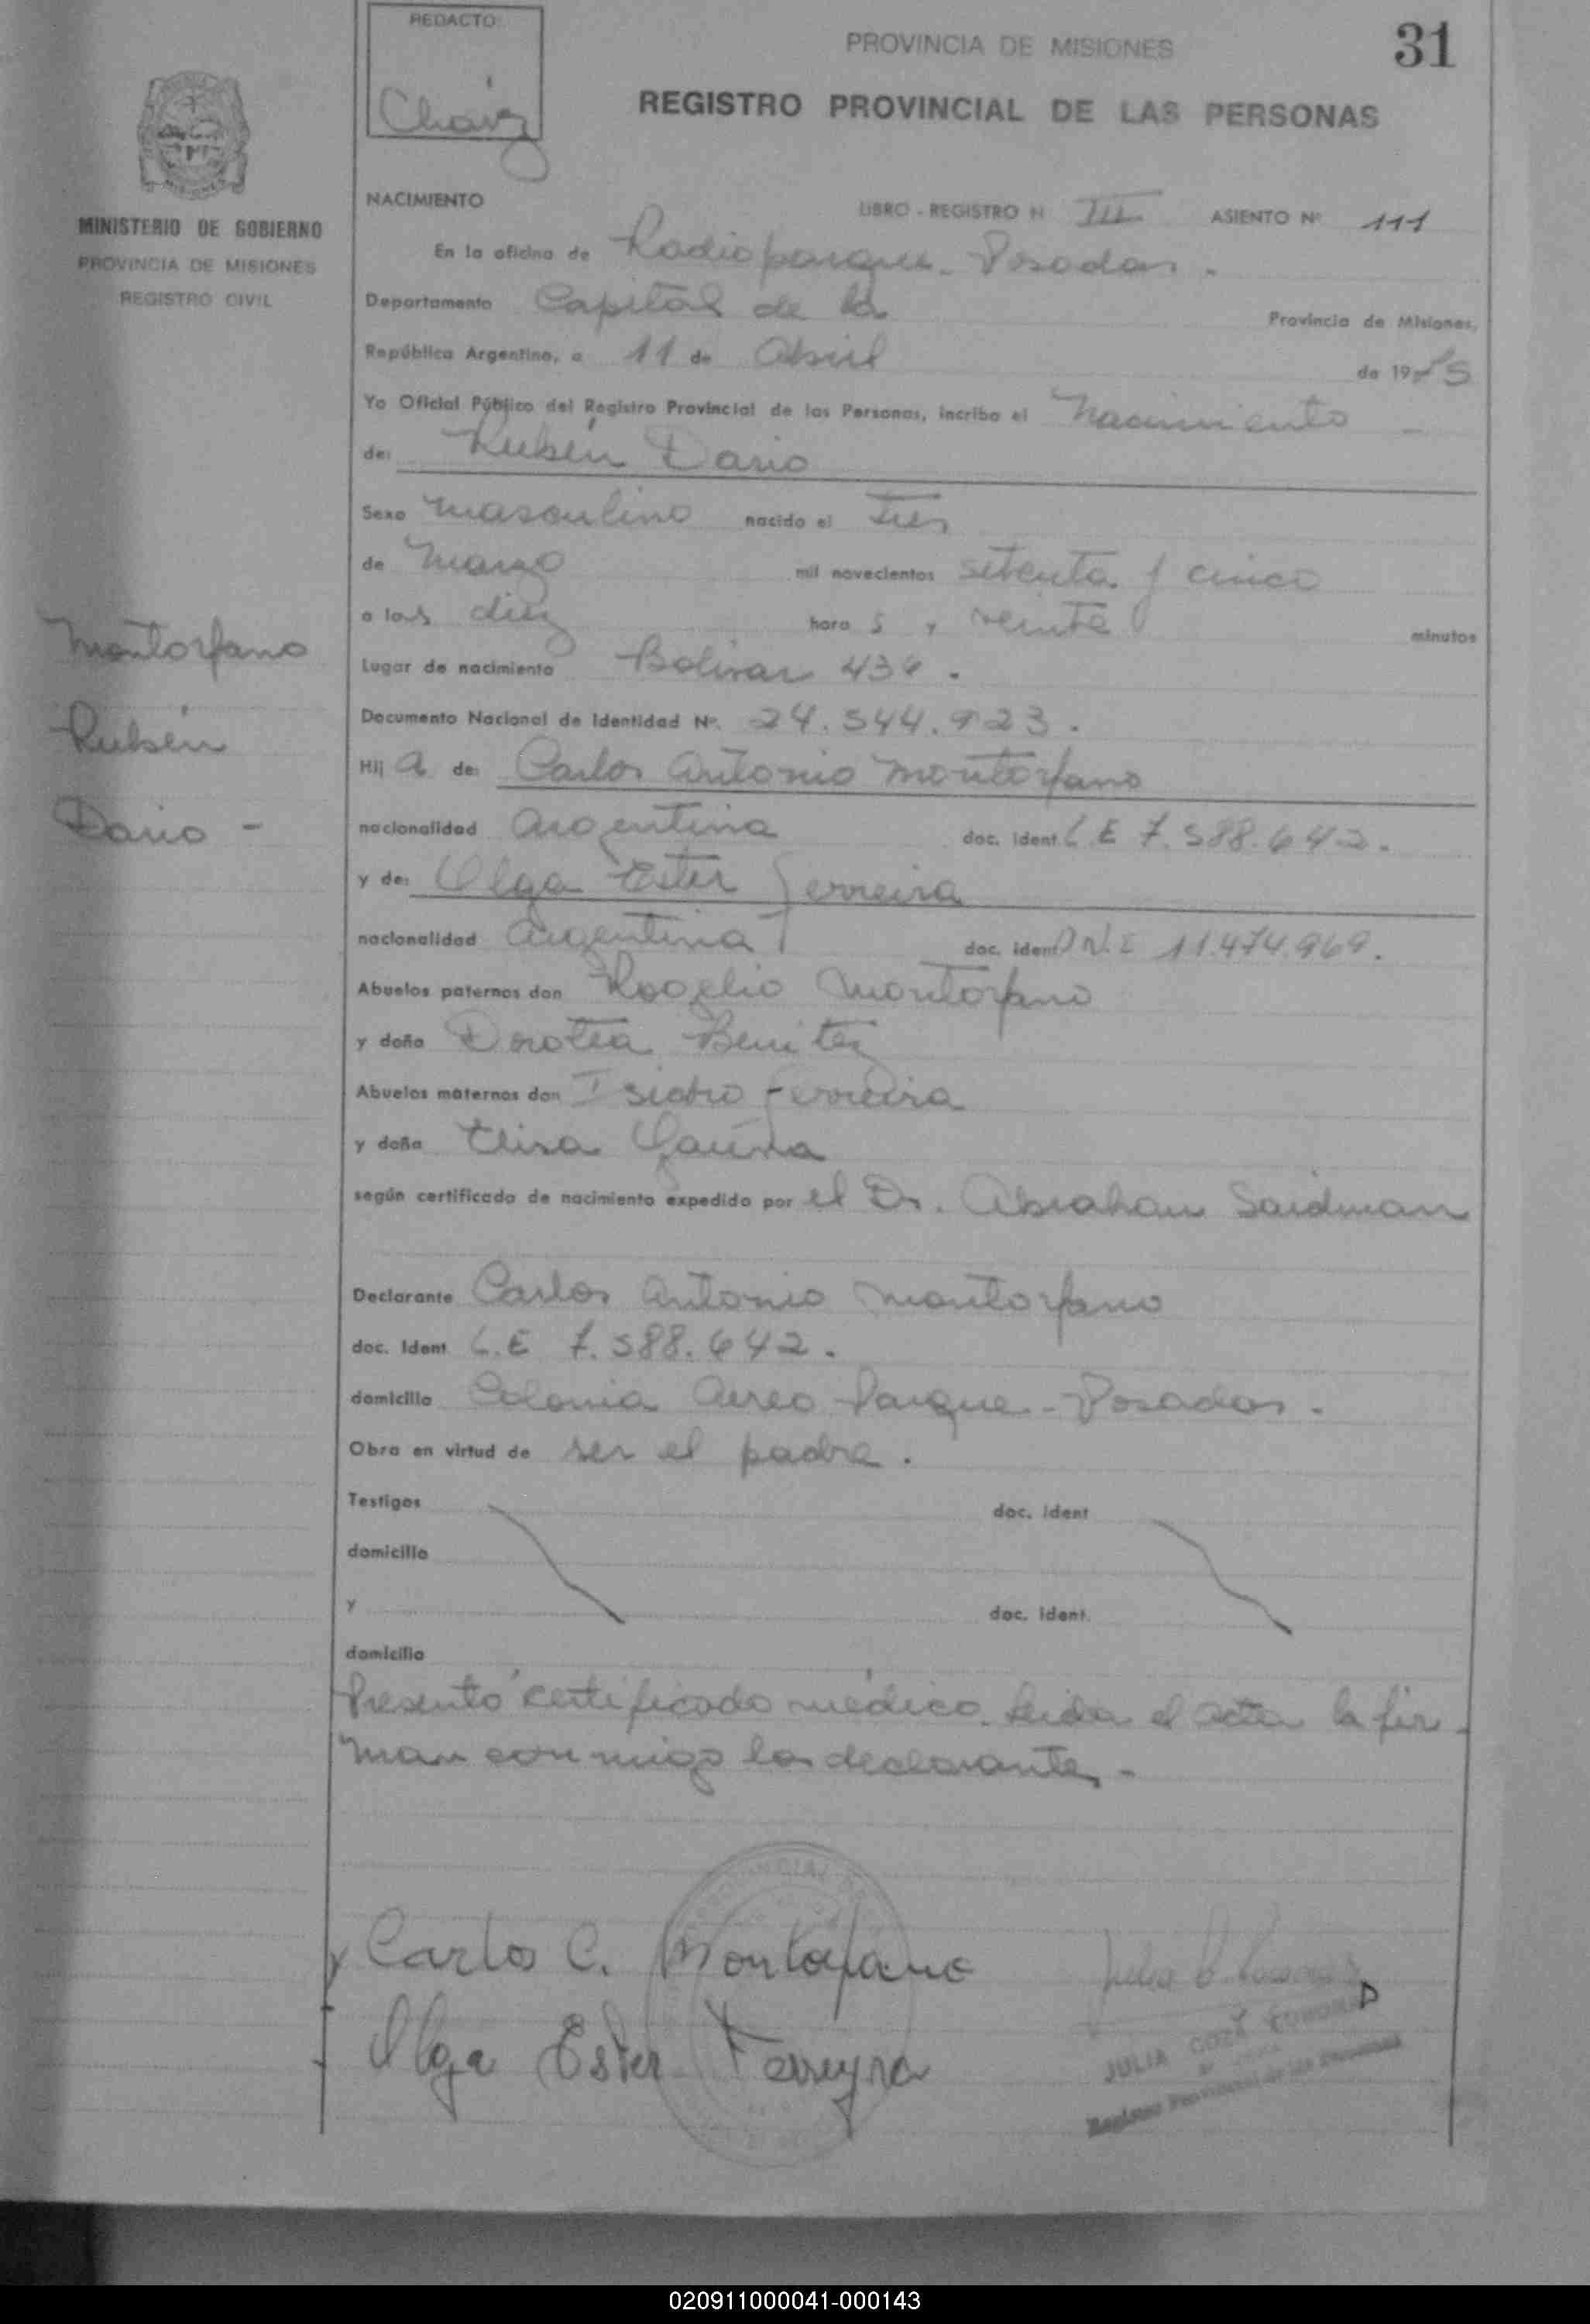 REDACTO:
Chávez
PROVINCIA DE MISIONES
31
REGISTRO PROVINCIAL DE LAS PERSONAS
MINISTERIO DE GOBIERNO
PROVINCIA DE MISIONES
REGISTRO CIVIL
NACIMIENTO
LIBRO - REGISTRO N III ASIENTO Nº 111
En la oficina de Radioparque - Posadas.
Departamento Capital de la Provincia de Misiones,
República Argentina, a 11 de Abril de 1975
Yo Oficial Público del Registro Provincial de las Personas, incribo el Nacimiento -
de: Rubén Dario
Sexo Masculino nacido el Tres
de Marzo mil novecientos setenta y cinco
a las diez hora s y veinte minutos
Lugar de nacimiento Bolivar 436.
Montorfano
Rubén
Dario -
Documento Nacional de Identidad Nº. 24.544.923.
Hij a de: Carlos Antonio Montorfano
nacionalidad Argentina doc. ident. L.E 7.588.642.
y de: Olga Ester Ferreira
nacionalidad Argentina doc. ident D.N.I 11.474.969.
Abuelos paternos don Rogelio Montorfano
y doña Dorotea Benitez
Abuelos maternos don Isidro Ferreira
y doña Elisa Gauna
según certificado de nacimiento expedido por el Dr. Abraham Saidman
Declarante Carlos Antonio Montorfano
doc. Ident. L.E 7.588.642.
domicilio Colonia Aereo Parque - Posadas.
Obra en virtud de ser el padre.
Testigos doc. Ident
domicilio
y doc. ident.
domicilio
Presentó certificado médico. Leida el acta la fir-
man conmigo los declarantes -
Carlos C. Montorfano
Olga Ester Ferreyra
JULIA
Registro Provincial de las Personas
020911000041-000143